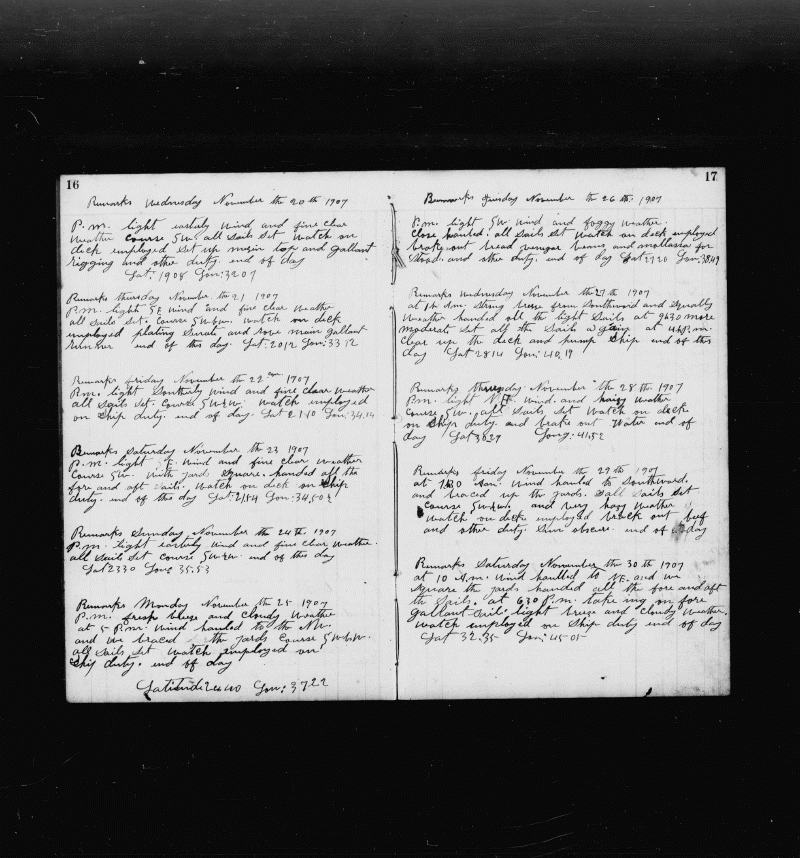 16
Remarks Wednesday November the 20th 1907
P.m. light easterly wind and fine clear
weather course SW. all sails set watch on
deck employed set up main top and gallant
rigging and other duty. end of day
Lat. 1908 Lon: 3207
Remarks thursday November th 21 1907
P.m. light SE wind and fine clear weather
all sails set. Course SW watch on deck
employed main gallant
end of this day. Lat. 2012 Lon: 33.12
Remarks friday November the 22 1907
P.m. light Southerly wind and fine clear weather
all sails set. Course SW watch employed
on Ship duty. end of day Lat 21.10 Lon: 34.14
Remarks Saturday November the 23 1907
P.m. light E. wind and fine clear weather
Course SW with yard square. handed all the
fore and aft sails. watch on deck on Ship
duty. end of the day Lat 2154 Lon: 34,50
Remarks Sunday November the 24th 1907
P.m. light easterly wind and fine clear weather.
all sails set course end of this day
Lat 2330 Long 35.53
Remarks Monday November the 25 1907
P.m. fresh breeze and cloudy weather
at 5 P.m. wind hauled to the NW.
and we braced the yards Course
all sails set watch employed on
Ship duty. end of day
Latitude Lon: 37 22
17
Remarks tuesday November the 26th. 1907
P.m. light SW. wind and foggy weather.
Close hauled. all sails set watch on deck employed
broke out bread vinegar beans and molasses for
and other duty. end of day Lat 2720 Lon: 38.49
Remarks Wednesday November the 27th 1907
at 1 A.m. Strong breeze from Southward and squally
weather handed all the light sails at 930 more
moderate set all the sails again at 4 P.m.
clear up the deck and pump Ship end of this
day Lat 2814 Lon: 40.19
Remarks thursday November the 28th 1907
P.m. light wind. and hazy weather
Course SW. all sails set watch on deck
on Ship duty. and broke out water end of
day Lat Long. 41.52
Remarks friday November the 29th 1907
at 730 wind hauled to Southward.
and braced up the yards. all sails set
Course and very hazy weather
watch on deck employed brock out beef
and other duty. Sun obscure. end of day
Remarks Saturday November the 30th 1907
at 10 A.m. wind haulled to NE. and we
square the yard. handed all the fore and aft
the sails. at 630 P.m. take ing on fore
gallant sail. light breeze and cloudy weather.
watch employed on Ship duty end of day
Lat 32.35 Lon: 45.05